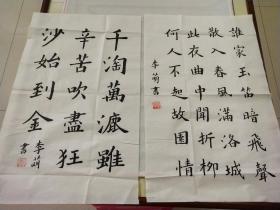 誰家玉笛暗飛聲
散入春風滿洛城
此夜曲中聞折柳
何人不起故園情
李萌書
千淘萬漉雖
辛苦吹盡狂
沙始到金
李萌書